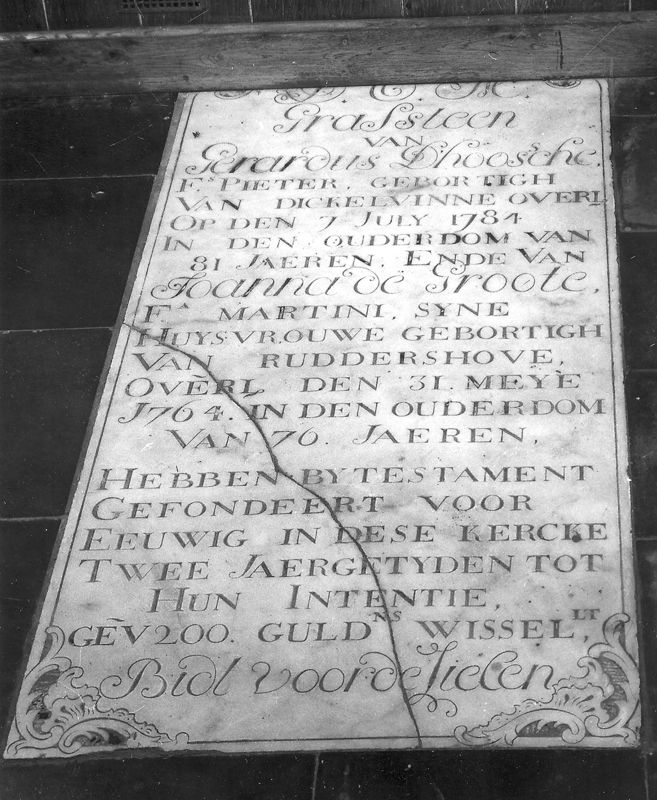 Grafsteen
VAN
Gerardus D'hoossche,
Fs PIETER, GEBORTIGH
VAN DICKELVINNE OVERL
OP DEN 7 JULY 1784
IN DEN OUDERDOM VAN
81 JAEREN, ENDE VAN
Joanna de Groote,
FA MARTINI, SYNE
HUYSVROUWE GEBORTIGH
VAN RUDDERSHOVE,
OVERL DEN 31. MEYE
1764. IN DEN OUDERDOM
VAN 76. JAEREN,
HEBBEN BY TESTAMENT
GEFONDEERT VOOR
EEUWIG IN DESE KERCKE
TWEE JAERGETYDEN TOT
HUN INTENTIE,
GEV̄ 200. GULDNS WISSEL,LT
Bidt voor de Sielen